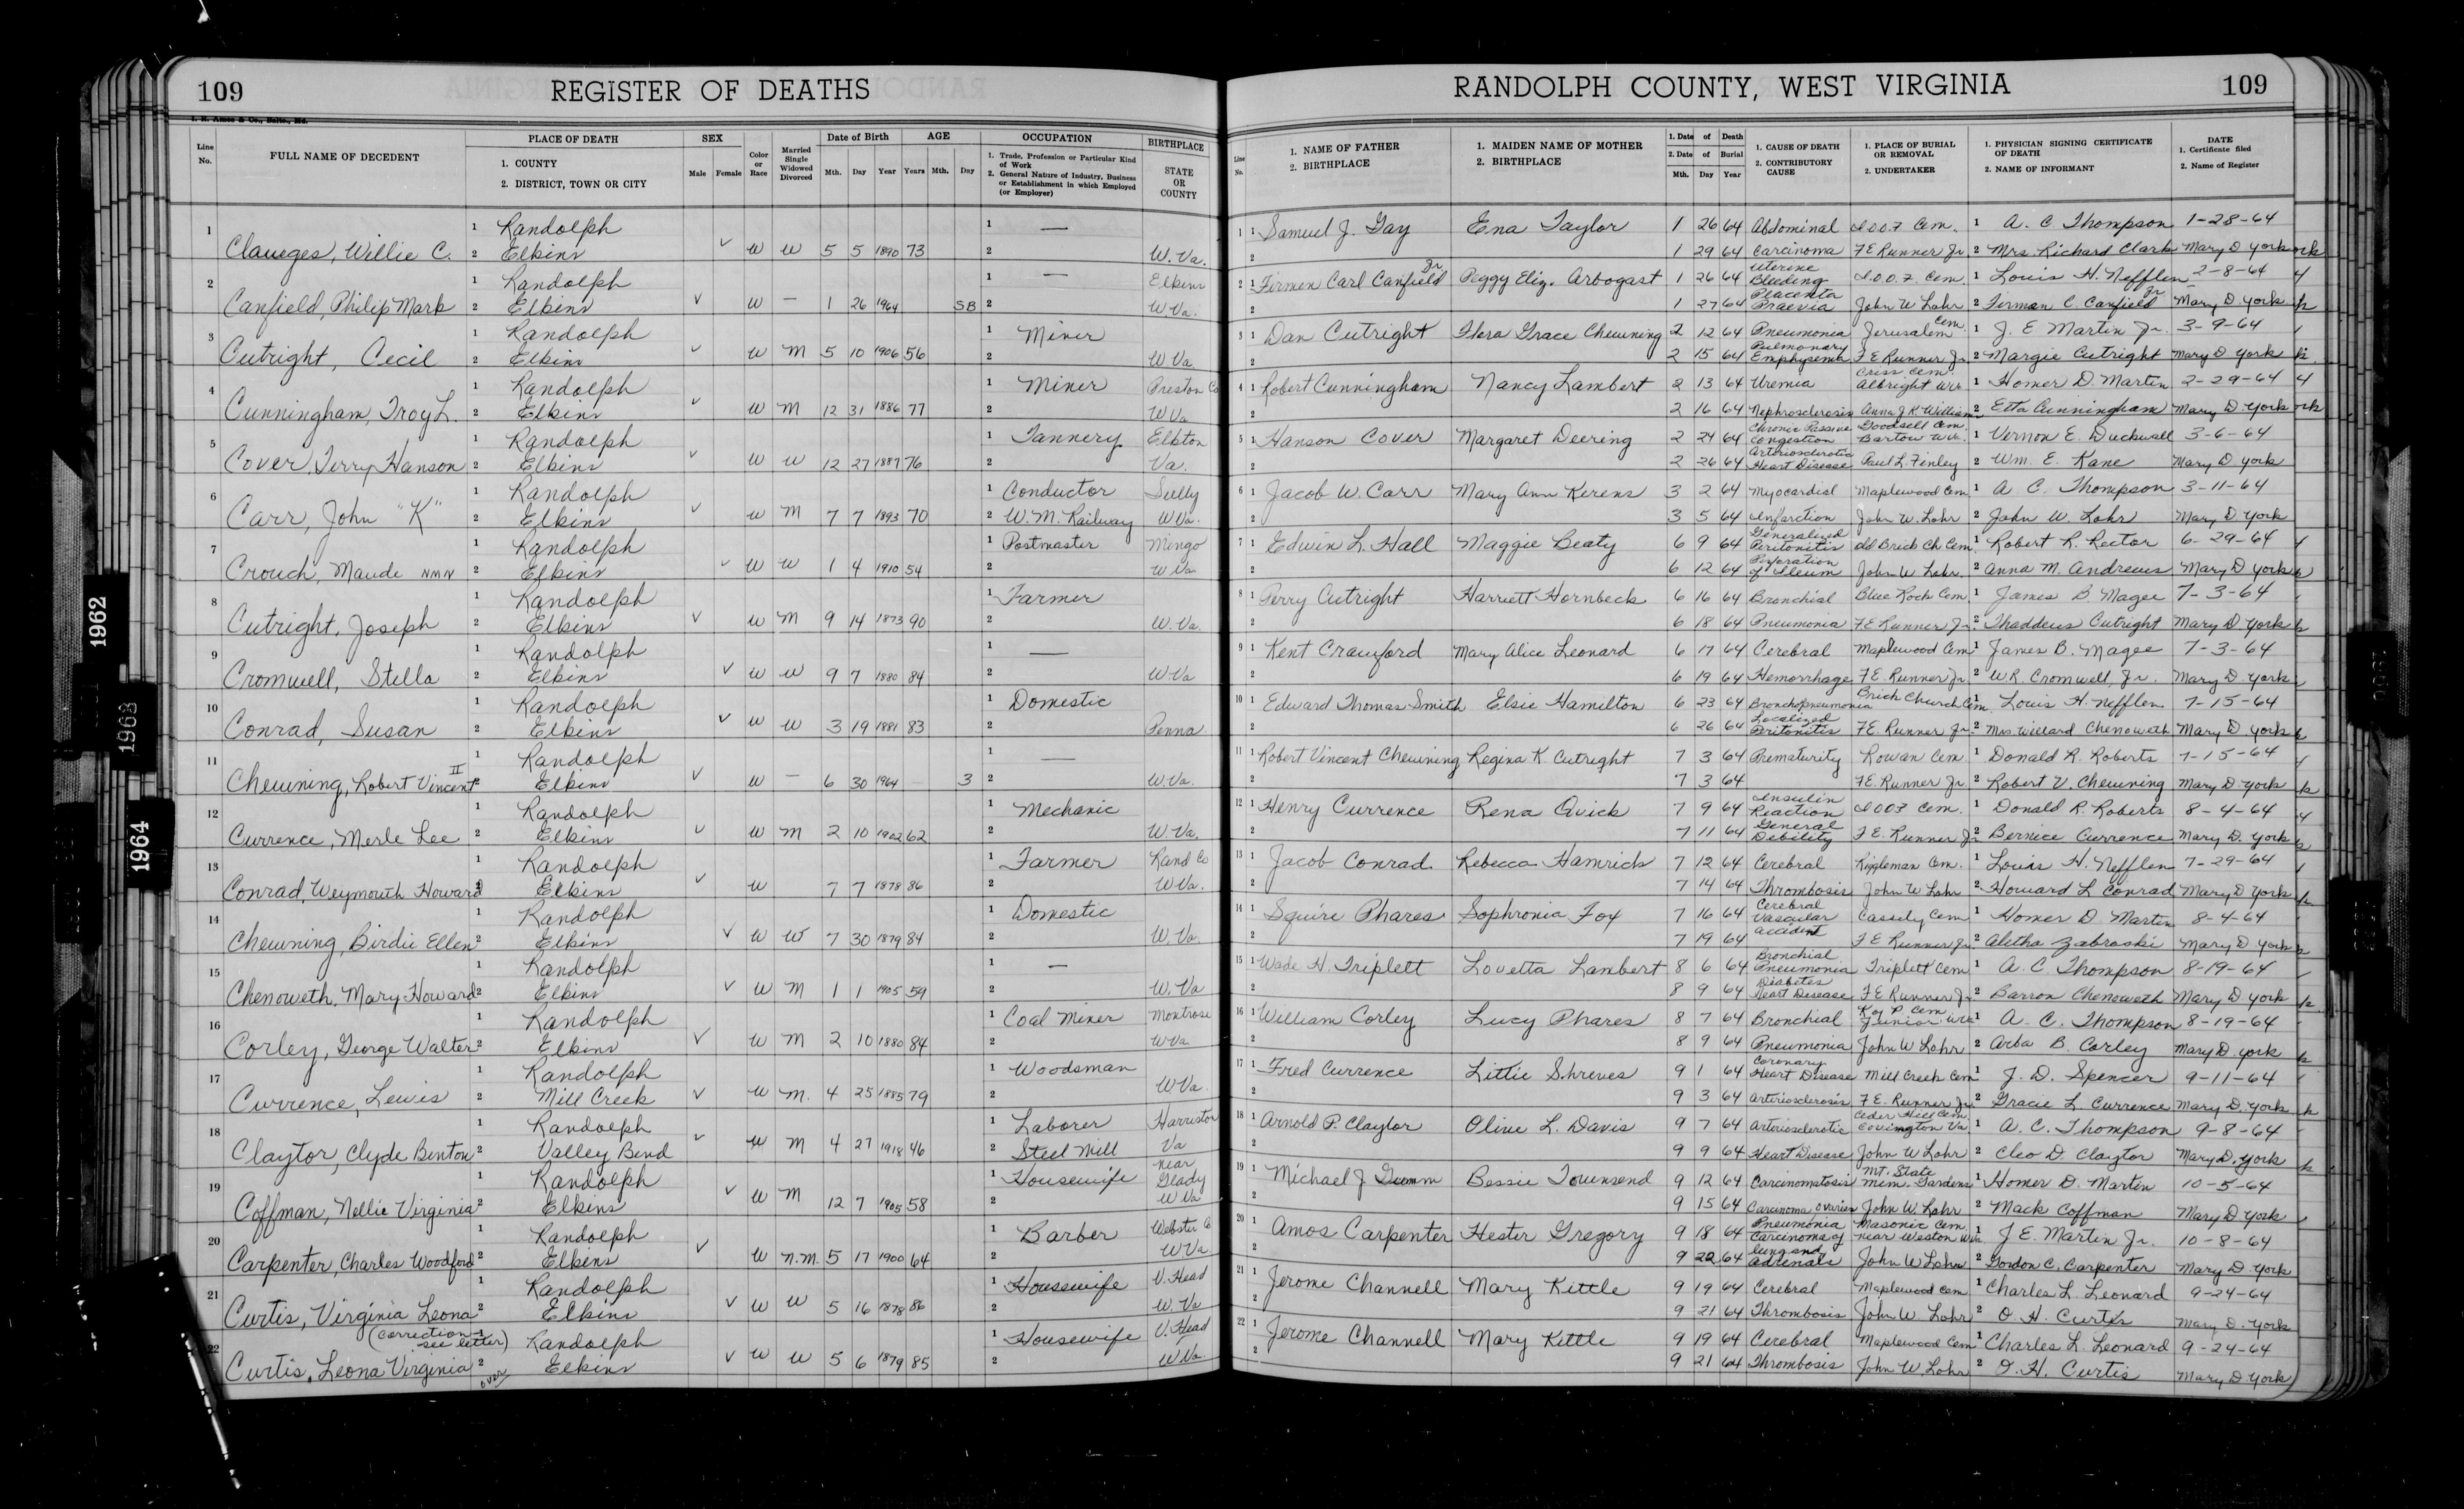 109
REGISTER OF DEATHS
RANDOLPH COUNTY, WEST VIRGINIA
109
Line No.
FULL NAME OF DECEDENT
PLACE OF DEATH
1. COUNTY
2. DISTRICT, TOWN OR CITY
SEX
Male Female
Color or Race
Married Single Widowed Divorced
Date of Birth
Mth. Day Year
AGE
Years Mth. Day
OCCUPATION
1. Trade, Profession or Particular Kind of Work
2. General Nature of Industry, Business or Establishment in which Employed (or Employer)
BIRTHPLACE
STATE OR COUNTY
Line No.
1. NAME OF FATHER
2. BIRTHPLACE
1. MAIDEN NAME OF MOTHER
2. BIRTHPLACE
1. Date of Death
2. Date of Burial
Mth. Day Year
1. CAUSE OF DEATH
2. CONTRIBUTORY CAUSE
1. PLACE OF BURIAL OR REMOVAL
2. UNDERTAKER
1. PHYSICIAN SIGNING CERTIFICATE OF DEATH
2. NAME OF INFORMANT
DATE
1. Certificate filed
2. Name of Register
1 1 Randolph 1 — 1 1 Samuel J. Gay Ena Taylor 1 26 64 Abdominal I.O.O.F Cem. 1 A. C Thompson 1-28-64
Clauges, Willie C. 2 Elkins ✓ W W 5 5 1890 73 2 W. Va. 2 1 29 64 Carcinoma F E Runner Jr 2 Mrs. Richard Clark Mary D York
2 1 Randolph 1 — Elkins 2 1 Firmen Carl Canfield Jr Peggy Eliz. Arbogast 1 26 64 Uterine Bleeding I.O.O.F. Cem. 1 Louis H. Nefflen 2-8-64
Canfield Philip Mark 2 Elkins ✓ W — 1 26 1964 SB 2 W.Va. 2 1 27 64 Placenta Praevia John W Lohr 2 Firman C Canfield Jr Mary D. York
3 1 Randolph 1 Miner 3 1 Dan Cutright Flora Grace Chewning 2 12 64 Pneumonia Jerusalem Cem. 1 J. E Martin Jr. 3-9-64
Cutright, Cecil 2 Elkins ✓ W M 5 10 1906 56 2 W Va. 2 2 15 64 Pulmonary Emphysema F E Runner Jr. 2 Margie Cutright Mary D York
4 1 Randolph 1 Miner Preston Co 4 1 Robert Cunningham Nancy Lambert 2 13 64 Uremia Criss Cem. Albright WVa 1 Homer D. Martin 2-29-64
Cunningham, Troy L. 2 Elkins ✓ W M 12 31 1886 77 2 W Va 2 2 16 64 Nephrosclerosis Anna J K Williams 2 Etta Cunningham Mary D. York
5 1 Randolph 1 Tannery Elkton 5 1 Hanson Cover Margaret Deering 2 24 64 Chronic Passive Congestion Goodsell Cem. Bartow WVa. 1 Vernon E. Duckwall 3-6-64
Cover, Terry Hanson 2 Elkins ✓ W W 12 27 1887 76 2 Va. 2 2 26 64 Arteriosclerotic Heart Disease Paul L. Finley 2 Wm. E. Kane Mary D York
6 1 Randolph 1 Conductor 6 1 Jacob W. Carr Mary Ann Kerens 3 2 64 Myocardial Maplewood Cem. 1 A C. Thompson 3-11-64
Carr, John "K" 2 Elkins ✓ W M 7 7 1893 70 2 W. M. Railway W Va. 2 3 5 64 Infarction John W. Lohr 2 John W. Lohr Mary D. York
7 1 Randolph 1 Postmaster Mingo 7 1 Edwin L. Hall Maggie Beaty 6 9 64 Generalized Peritonitis Old Brick Ch Cem. 1 Robert R. Rector 6-29-64
Crouch, Maude NMN 2 Elkins ✓ W W 1 4 1910 54 2 W Va 2 6 12 64 Perforation of Ileum John W Lohr. 2 Anna M. Andrews Mary D York
8 1 Randolph 1 Farmer 8 1 Perry Cutright Harriett Hornbeck 6 16 64 Bronchial Blue Rock Cem. 1 James B. Magee 7-3-64
Cutright, Joseph 2 Elkins ✓ W M 9 14 1873 90 2 W. Va. 2 6 18 64 Pneumonia F E Runner Jr. 2 Thaddeus Cutright Mary D York
9 1 Randolph 1 — 9 1 Kent Crawford Mary Alice Leonard 6 17 64 Cerebral Maplewood Cem 1 James B. Magee 7-3-64
Cromwell, Stella 2 Elkins ✓ W W 9 7 1880 84 2 W Va 2 6 19 64 Hemorrhage F E. Runner Jr. 2 W.R. Cromwell, Jr. Mary D. York
10 1 Randolph 1 Domestic 10 1 Edward Thomas Smith Elsie Hamilton 6 23 64 Bronchopneumonia Brick Church Cem 1 Louis H. Nefflen 7-15-64
Conrad, Susan 2 Elkins ✓ W W 3 19 1881 83 2 Penna. 2 6 26 64 Localized Peritonitis F E. Runner Jr. 2 Mrs Willard Chenoweth Mary D York
11 1 Randolph 1 — 11 1 Robert Vincent Chewning Regina K Cutright 7 3 64 Prematurity Rowan Cem 1 Donald R. Roberts 7-15-64
Chewning, Robert Vincent II 2 Elkins ✓ W — 6 30 1964 — 3 2 W.Va. 2 7 3 64 F.E. Runner Jr 2 Robert V. Chewning Mary D York
12 1 Randolph 1 Mechanic 12 1 Henry Currence Rena Quick 7 9 64 Insulin Reaction I.O.O.F Cem. 1 Donald R. Roberts 8-4-64
Currence, Merle Lee 2 Elkins ✓ W M 2 10 1902 62 2 W. Va. 2 7 11 64 General Debility F E. Runner Jr 2 Bernice Currence Mary D. York
13 1 Randolph 1 Farmer Rand Co 13 1 Jacob Conrad Rebecca Hamrick 7 12 64 Cerebral Riggleman Cem. 1 Louis H. Nefflen 7-29-64
Conrad, Weymouth Howard 2 Elkins ✓ W 7 7 1878 86 2 W Va. 2 7 14 64 Thrombosis John W Lohr 2 Howard L Conrad Mary D York
14 1 Randolph 1 Domestic 14 1 Squire Phares Sophronia Fox 7 16 64 Cerebral Vascular Cassity Cem 1 Homer D. Martin 8-4-64
Chewning, Birdie Ellen 2 Elkins ✓ W W 7 30 1879 84 2 W. Va. 2 7 19 64 Accident F E Runner Jr. 2 Aletha Zabroski Mary D York
15 1 Randolph 1 — 15 1 Wade H. Triplett Lovetta Lambert 8 6 64 Bronchial Pneumonia Triplett Cem 1 A. C. Thompson 8-19-64
Chenoweth, Mary Howard 2 Elkins ✓ W M 1 1 1905 59 2 W. Va 2 8 9 64 Diabetes Heart Disease F E Runner Jr. 2 Barron Chenoweth Mary D York
16 1 Randolph 1 Coal Miner Montrose 16 1 William Corley Lucy Phares 8 7 64 Bronchial K of P Cem Junior WVa 1 A. C. Thompson 8-19-64
Corley, George Walter 2 Elkins ✓ W M 2 10 1880 84 2 W Va. 2 8 9 64 Pneumonia John W Lohr 2 Arba B. Corley Mary D. York
17 1 Randolph 1 Woodsman 17 1 Fred Currence Littie Shreves 9 1 64 Coronary Heart Disease Mill Creek Cem 1 J. D. Spencer 9-11-64
Currence, Lewis 2 Mill Creek ✓ W M. 4 25 1885 79 2 W Va. 2 9 3 64 Arteriosclerosis F E. Runner Jr. 2 Gracie L. Currence Mary D. York
18 1 Randolph 1 Laborer Harriston 18 1 Arnold P. Claytor Olive L. Davis 9 7 64 Arteriosclerotic Ceder Hill Cem. Covington Va 1 A. C. Thompson 9-8-64
Claytor, Clyde Benton 2 Valley Bend ✓ W M 4 27 1918 46 2 Steel Mill Va 2 9 9 64 Heart Disease John W Lohr 2 Cleo D. Claytor Mary D. York
19 1 Randolph 1 Housewife near Glady 19 1 Michael J Gumm Bessie Townsend 9 12 64 Carcinomatosis Mt. State Mem. Gardens 1 Homer D. Martin 10-5-64
Coffman, Nellie Virginia 2 Elkins ✓ W M 12 7 1905 58 2 W Va 2 9 15 64 Carcinoma, Ovaries John W. Lohr 2 Mack Coffman Mary D York
20 1 Randolph 1 Barber Webster Co 20 1 Amos Carpenter Hester Gregory 9 18 64 Pneumonia Carcinoma of Masonic Cem. near Weston WVa. 1 J E. Martin Jr. 10-8-64
Carpenter, Charles Woodford 2 Elkins ✓ W n.m. 5 17 1900 64 2 W Va 2 9 22 64 lung and adrenals John W Lohr 2 Gordon C. Carpenter Mary D. York
21 1 Randolph 1 Housewife V. Head 21 1 Jerome Channell Mary Kittle 9 19 64 Cerebral Maplewood Cem 1 Charles L. Leonard 9-24-64
Curtis, Virginia Leona 2 Elkins ✓ W W 5 16 1878 86 2 W. Va 2 9 21 64 Thrombosis John W. Lohr 2 O H. Curtis Mary D. York
(Correction see letter)
22 Randolph 1 Housewife V. Head 22 1 Jerome Channell Mary Kittle 9 19 64 Cerebral Maplewood Cem 1 Charles L. Leonard 9-24-64
Curtis, Leona Virginia 2 over Elkins ✓ W W 5 6 1879 85 2 W Va. 2 9 21 64 Thrombosis John W. Lohr 2 O. H. Curtis Mary D. York
1962
1963
1964